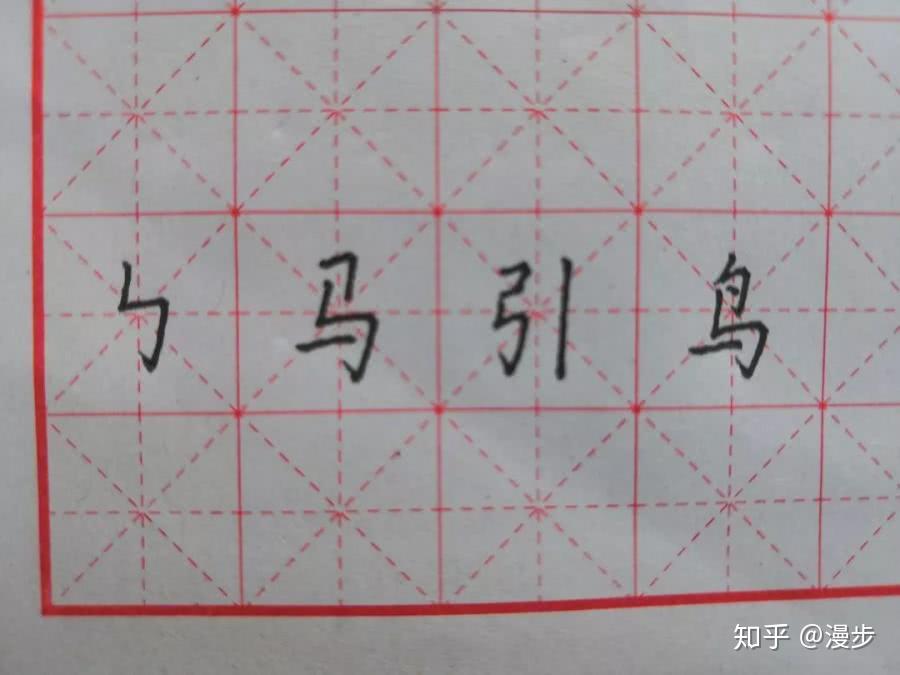 ㇉ 马 引 鸟
知乎 @漫步